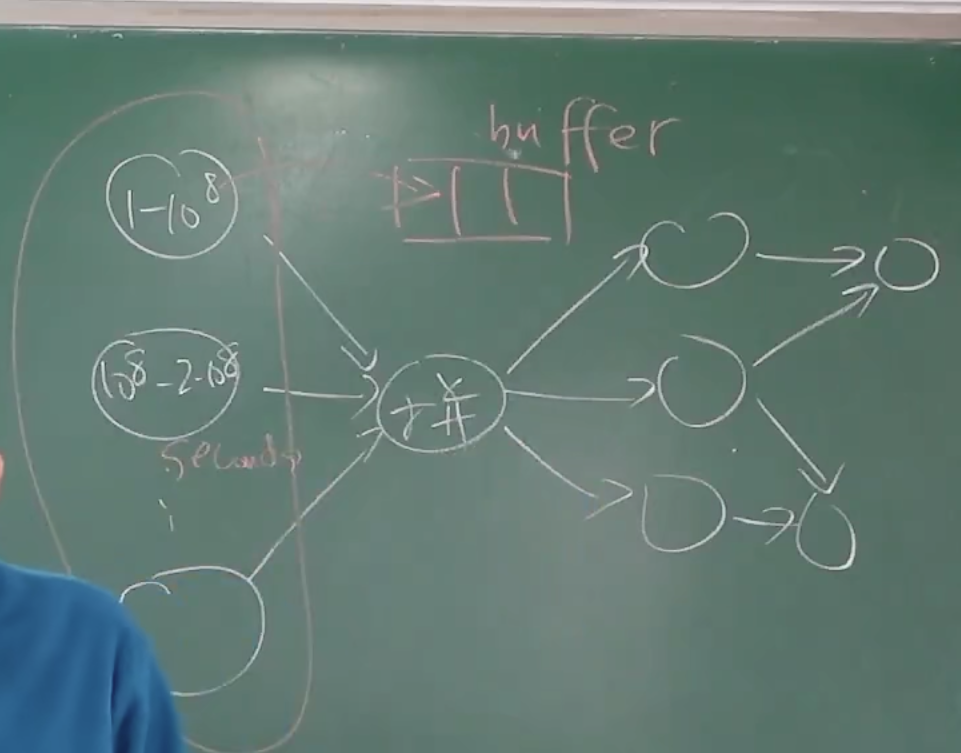 buffer
1-10⁸
10⁸-2·10⁸
seconds